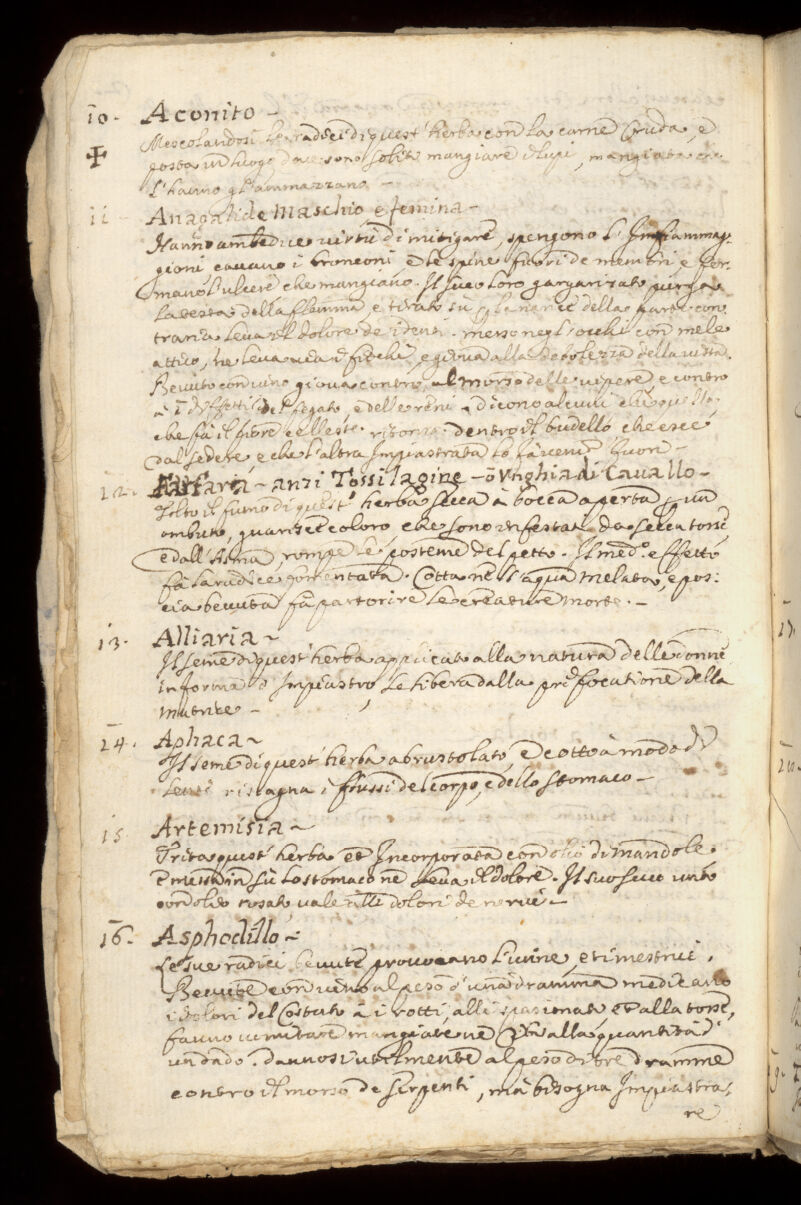 10. Aconito -
Mescolandosi le radici di quest' herba con la carne cruda, e
posta in luogo dove sono soliti mangiare i lupi, mangiata che
l'hanno gl'ammazzano -
11 Anagalide Maschio e femina -
Hanno ambedue virtù di mitigare, spengono l'Infiammag-
gioni cavano i bronconi e le spine fuori de membri, e fer-
mano l'ulcere che mangiano. Il suco loro gargarizato purga
la testa della flemma, e tirato sù per le narici della parte con
traria leva il dolore de i denti. messo negl'occhi con mele
attico, ne leva i fiochi, e giova alla debolezza della vista.
Bevuto con vino giova contro al morso delle vipere, e contro
à i diffetti del fegato, e delle reni. dicono alcuni che quella
che fà il fiore celeste ritorna dentro il budello che esce
dal sedere, e che l'altra Impiastrata lo fà venir fuori -
12. Farfaria - anzi Tossilagine - ò Vnghia di Cavallo -
Tolto il fumo di quest' herba secca à bocca aperta per un
ombuto, guarisce coloro, che sono infestati da secca tosse
e dall'Asma, rompe le posteme del petto. Il med.º effetto
fà la radice fomentata. Cotta nell'aqua melata, e pos-
cia bevuta fà partorire le creature morte. -
13. Alliaria -
Il seme di quest' herba applicato alla natura delle donne
in forma d'Impiastro, le libera dalla prefocatione della
matrice -
14. Aphaca -
Il seme di quest' herba abrustolato, e cotto à modo di
lenti ristagna i flussi del corpo, e dello stomaco -
15 Artemisia -
Trita quest' herba et Incorporata con olio di mandole
e messa in sù lo stomaco ne leva il dolore. Il suo suco unto
con olio rosato, vale nelli dolori de nervi -
16. Asphodillo -
Le sue radici bevute provocano l'urine, e ti mestrui.
Bevute con vino al peso d'una dramma medicano
i dolori del costato à i rotti, alli spasimati et alla tosse,
fanno vomitare mangiatene alla quantità d'
un dado. dannosi utilmente al peso di tre dramme
contro il morso de serpenti, mà bisogna Impiastra-
re
17.